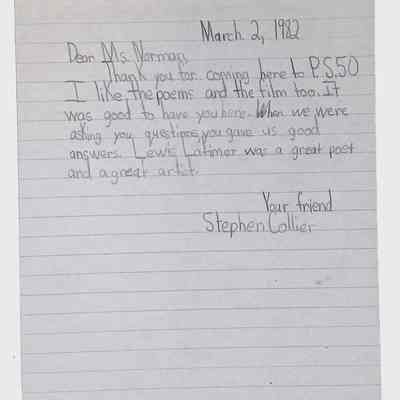 March 2, 1982
Dear Ms. Norman,
Thank you for coming here to P.S.50
I like the poems and the film too. It
was good to have you here. When we were
asking you questions, you gave us good
answers. Lewis Latimer was a great poet
and a great artist.
Your friend
Stephen Collier